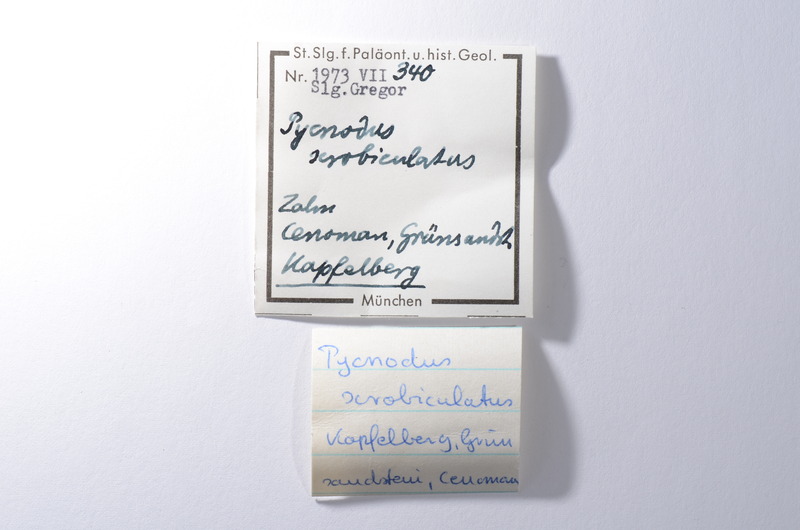 St. Slg. f. Paläont. u. hist. Geol.
Nr. 1973 VII 340
Slg.Gregor
Pycnodus
scrobiculatus
Zahn
Cenoman, Grünsandst.
Kapfelberg
München
Pycnodus
scrobiculatus
Kapfelberg, Grün
sandstein, Cenoman